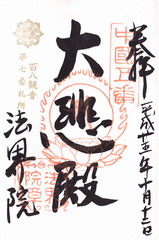 奉拝
平成廿五年十月十二日
中國五番
大悲殿
百八観音
第七番札所
法界院